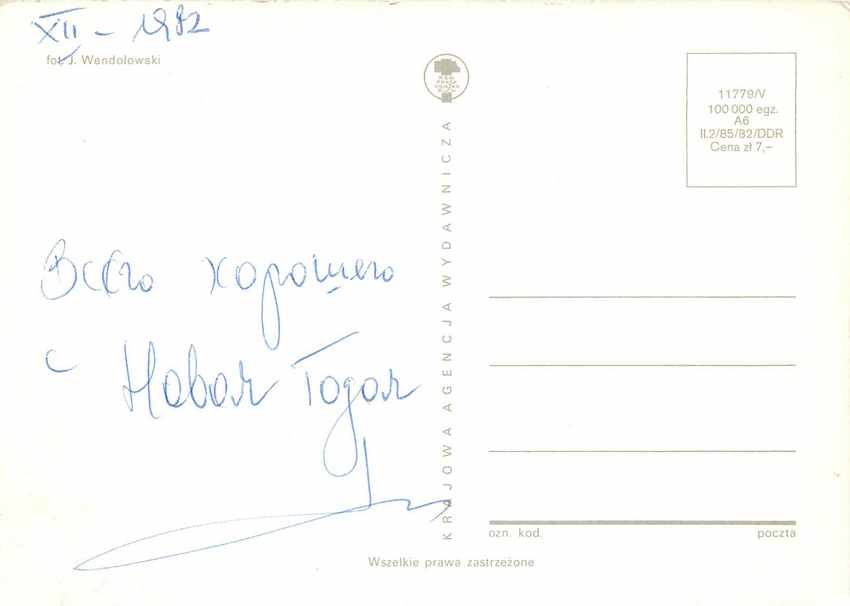 XII - 1982
fot. J. Wendołowski
11779/V
100 000 egz.
A6
II.2/85/82/DDR
Cena zł 7,–
KRAJOWA AGENCJA WYDAWNICZA
Всего хорошего
с Новом Годом
ozn. kod.
poczta
Wszelkie prawa zastrzeżone